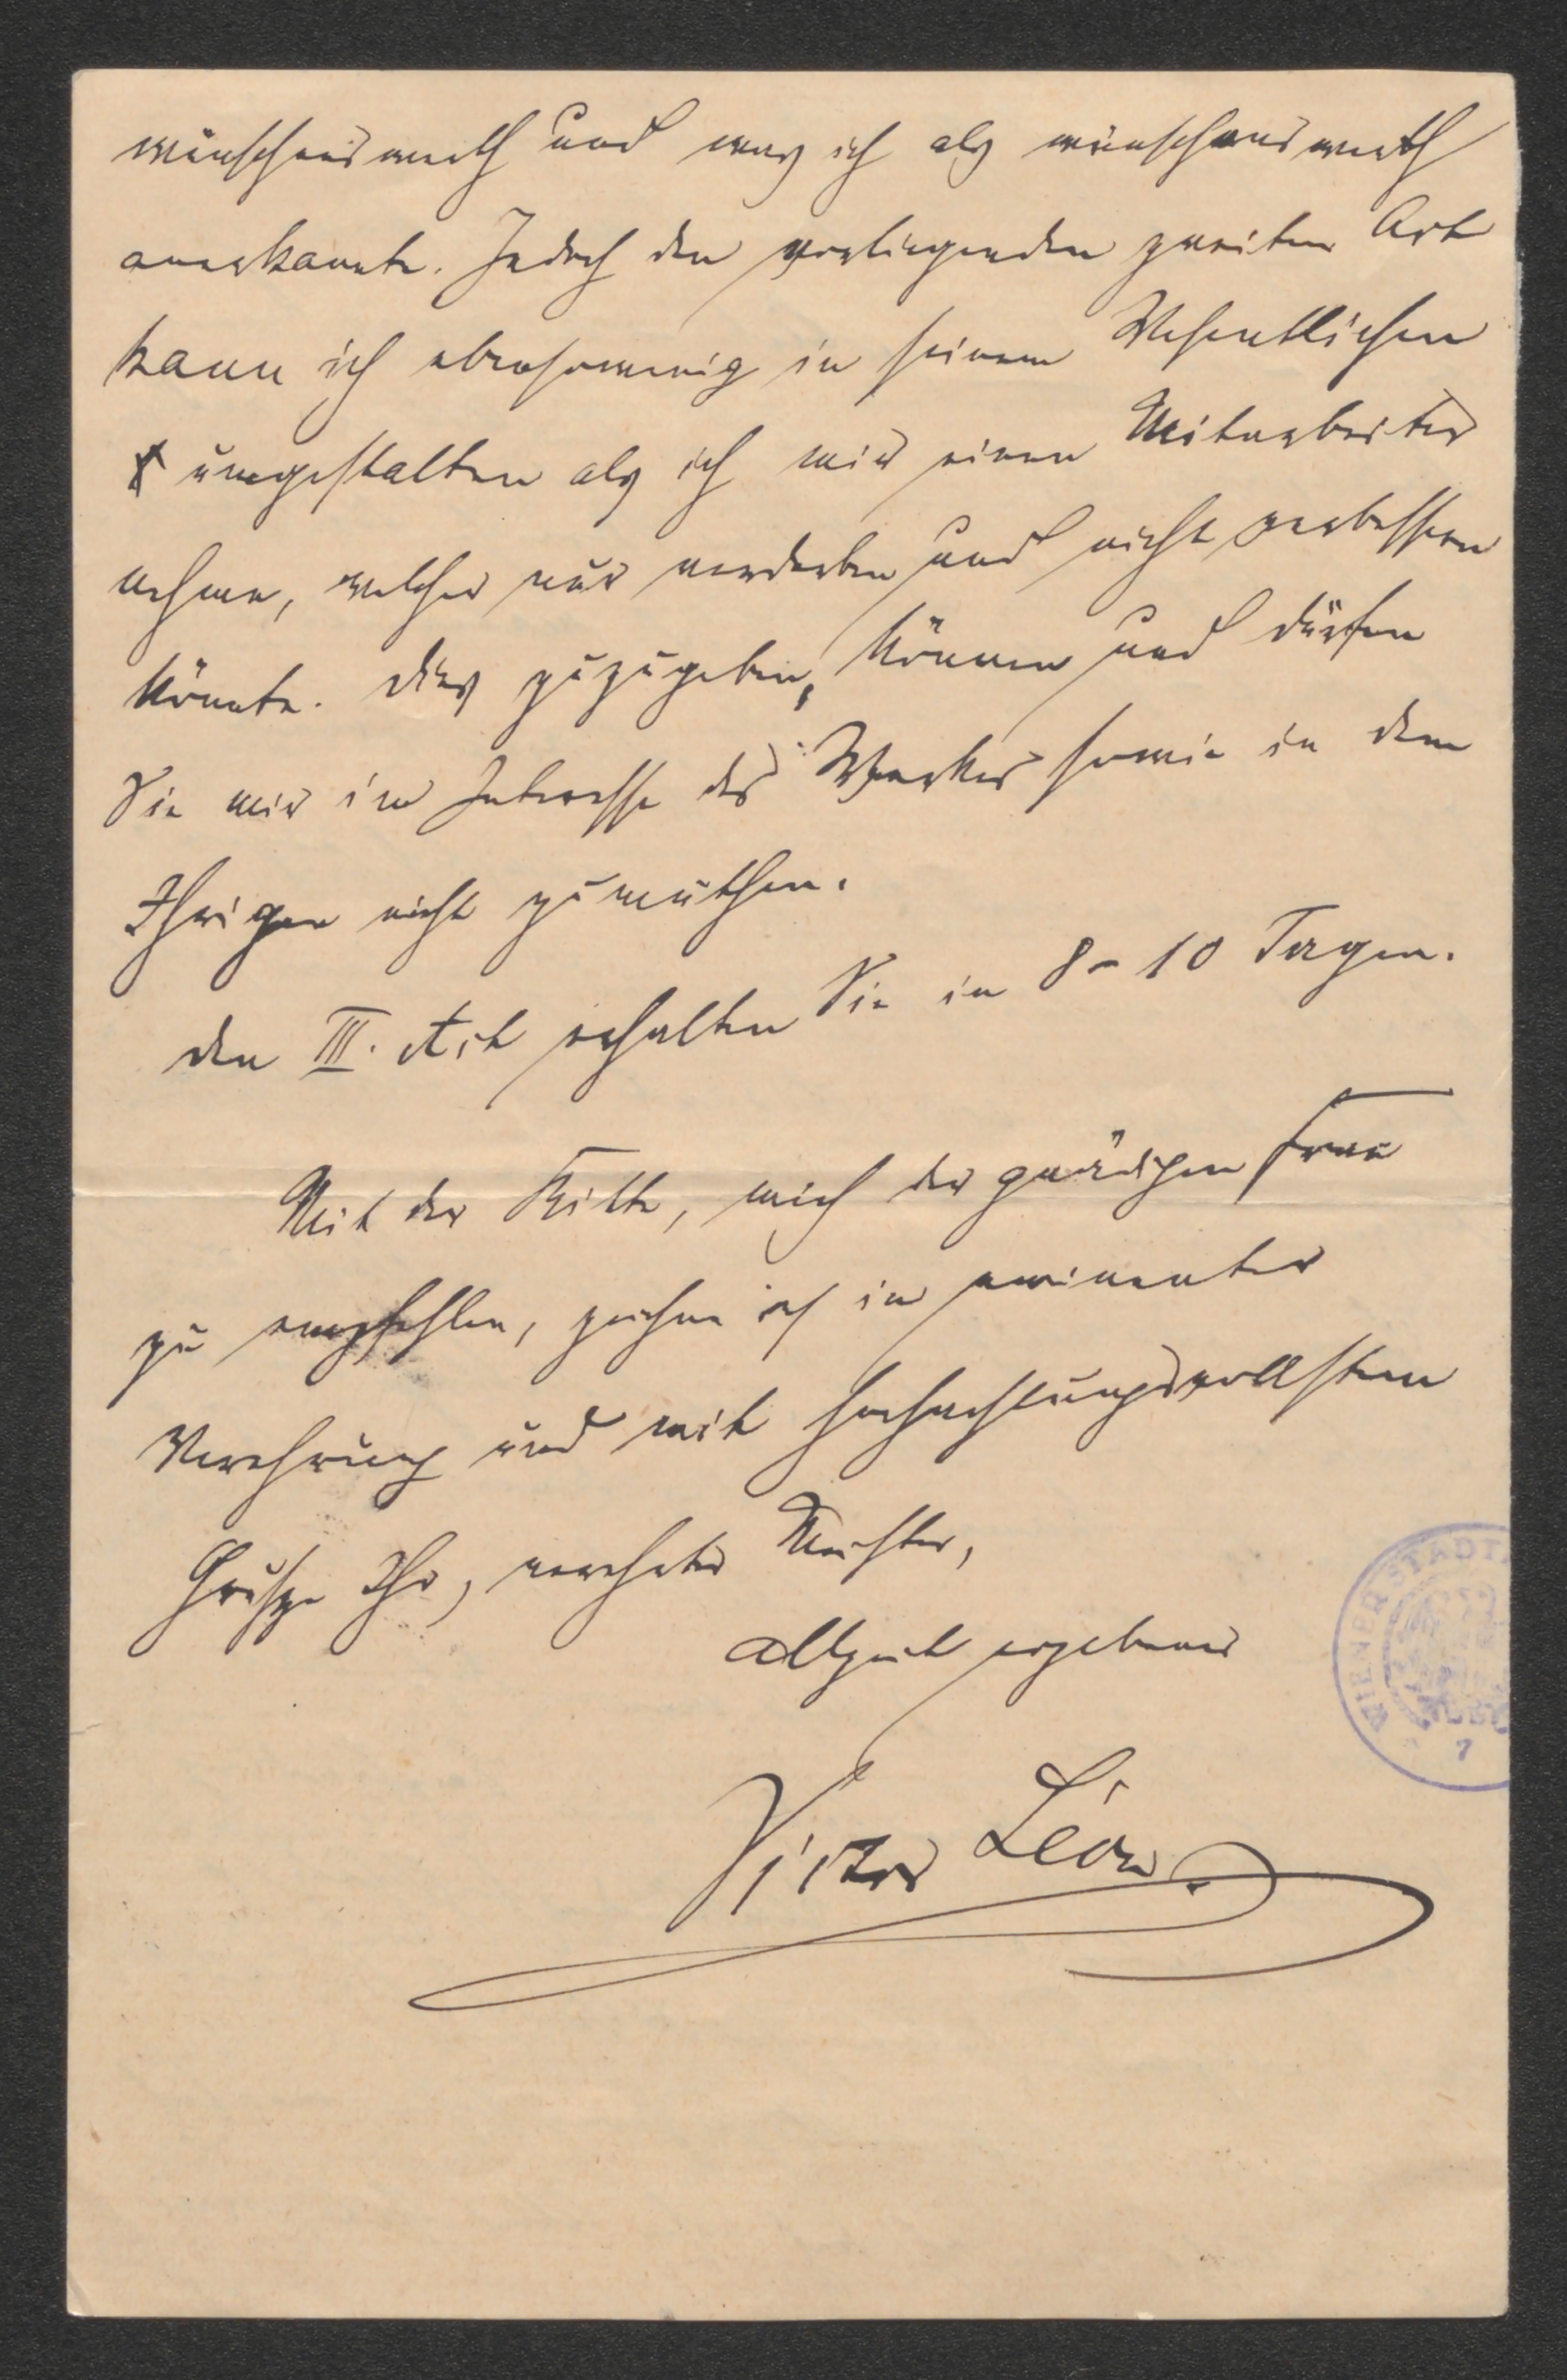 wünschenswerth und was ich als wünschenswerth
anerkannte. Jedoch den vorliegenden zweiten Act
kann ich ebensowenig in seinem Wesentlichen
umgestalten als ich mir einen Mitarbeiter
nehme, welcher nur verderben und nicht verbessern
könnte. Dies zuzugeben, können und dürfen
Sie mir im Interesse des Werkes sowie in dem
Ihrigen nicht zumuthen.
Den III. Act erhalten Sie in 8-10 Tagen.
Mit der Bitte, mich der gnädigen Frau
zu empfehlen, zeichne ich in eminenter
Verehrung und mit hochachtungsvollstem
Grusze Ihr, verehrter Meister,
allzeit ergebener
Victor Léon.
WIENER STADT
7